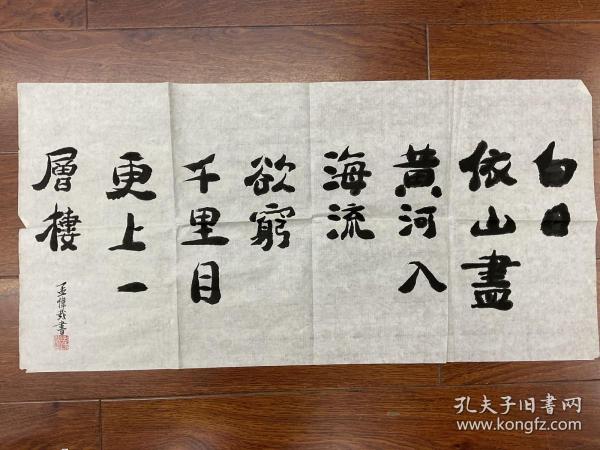 白日
依山盡
黄河入
海流
欲窮
千里目
更上一
層樓
孔夫子旧書网
www.kongfz.com